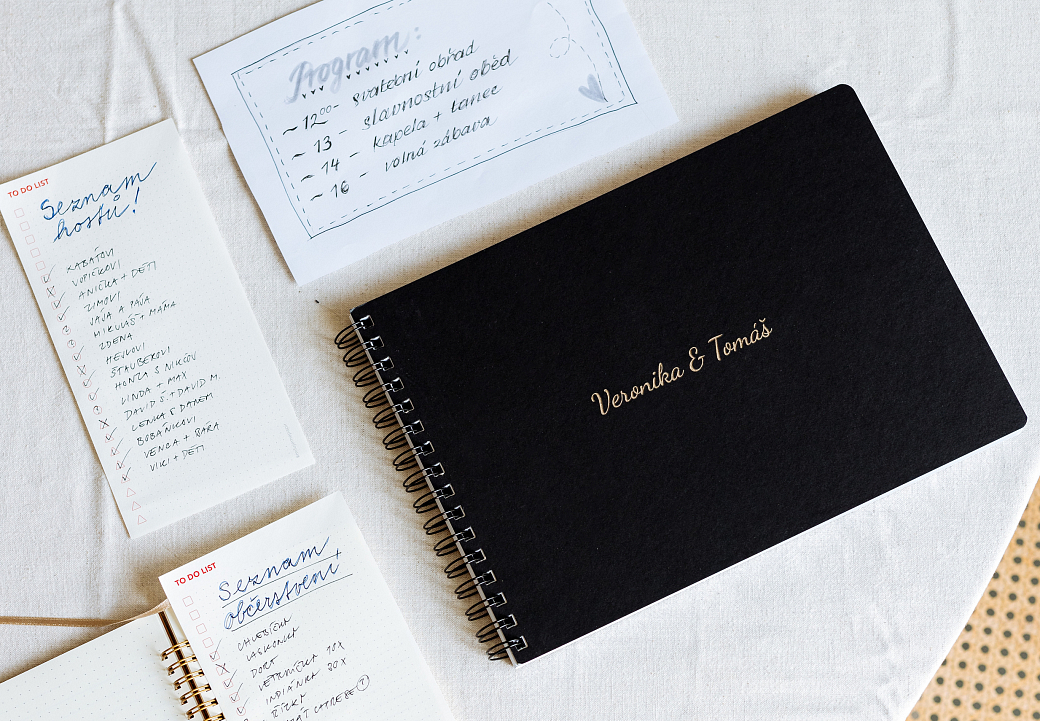 Program:
~ 12⁰⁰ - svatební obřad
~ 13 - slavnostní oběd
~ 14 - kapela + tanec
~ 16 - volná zábava
TO DO LIST
Seznam
hostů!
KABÁTOVI
VOPIČKOVI
ANIČKA + DĚTI
ZIMOVI
JÁJA A PÁJA
MIKULÁŠ + MÁMA
ZDENA
HEJLOVI
ŠTAUBEROVI
HONZA S NIKČOU
LINDA + MAX
DAVID Š. + DAVID M.
LENKA S DANEM
BOBÁNKOVI
VENCA + BÁRA
VIKI + DĚTI
Veronika & Tomáš
TO DO LIST
Seznam
občerstvení
CHLEBÍČKY
LASKONKY
DORT
VĚTRNÍČKY 10X
INDIÁNKY 20X
ŘÍZKY